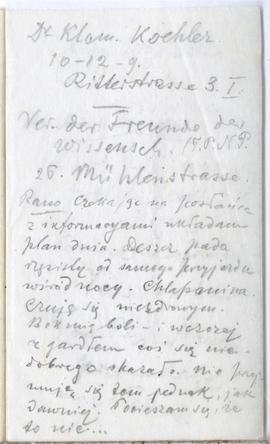 Dr Klau. Koehler.
10-12-9.
Ritterstrasse 3. I.
Ver. der Freunde der
Wissensch. T.P.N.P.
26. Mühlenstrasse.
Rano czekając na posłańca
z informacyami układam
plan dnia. Deszcz pada
rzęsisty od samego przyjazdu
wśród nocy. Chlapanina.
Czuję się niezdrowym.
Bok mię boli - i wczoraj
z gardłem coś się nie-
dobrego okazało. Nie przej-
muję się tem jednak, jak
dawniej. Pocieszam się, że
to nic...